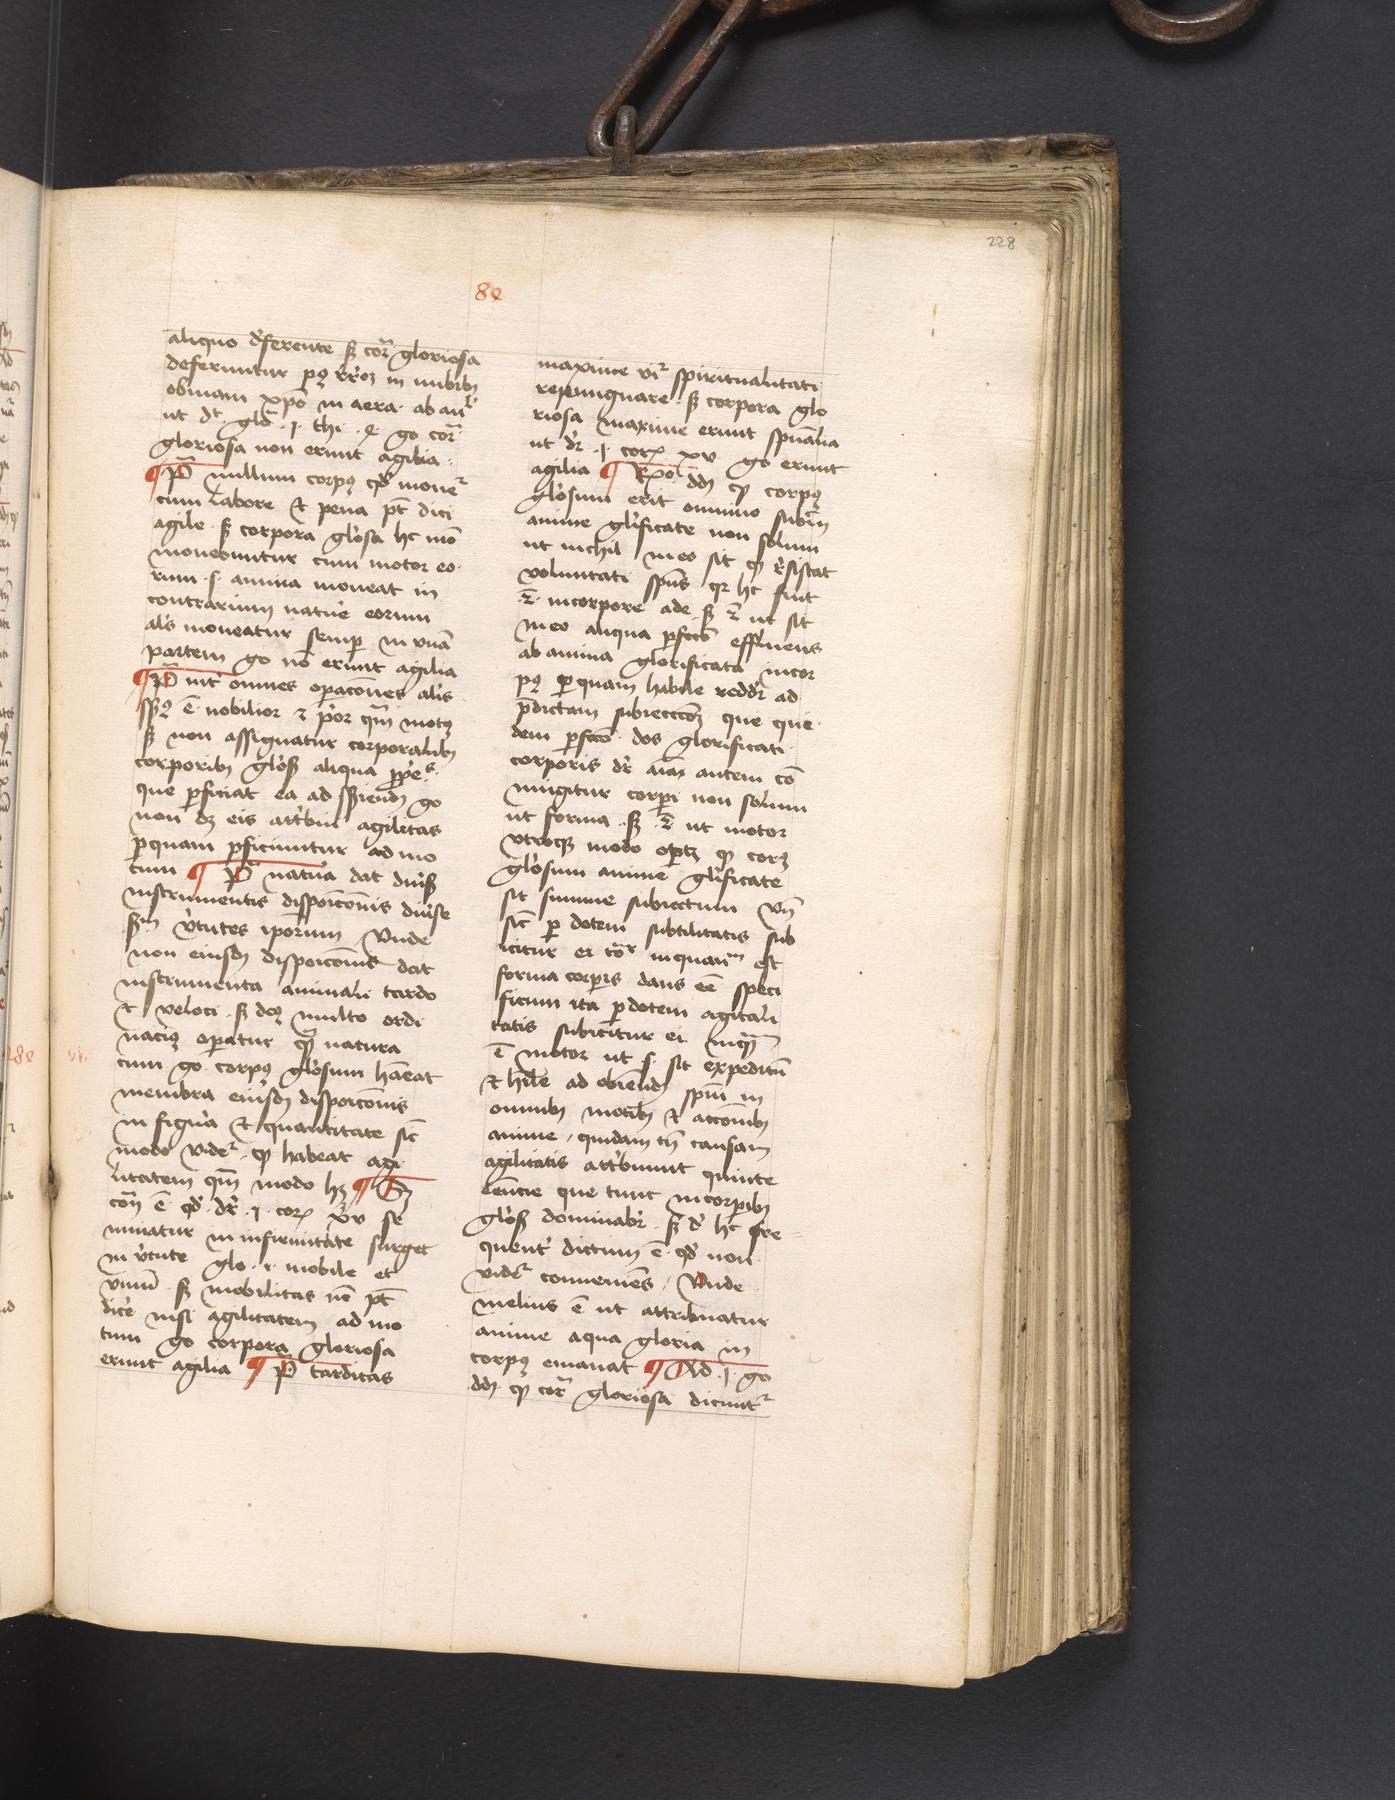 228
84
aliquo dͥferente sꝫ corᵃ gloriosa
deferuntur pꝰ rͥrōꝫ in nubibꝫ
obuiam xpo in aera ab anᵍͥ
ut dt glᵃ .j. thi .4. go corᵃ
gloriosa non erunt agilia
¶ P̄ nullum corpꝰ qd mouetᷣ
cum labore et pena pt dici
agile sꝫ corpora glͦosa hͦ mo
mouebuntur cum motor eo
rum .s. anima moueat in
contrarium natuͤ eorum
alͥs moueatur semꝑ in vnā
partem go nō erunt agilia
¶ P̄ intͥ omnes oꝑacōnes alͥs
ē nobilior et pͥor qm̄ motꝰ
sꝫ non assignatur corporalibꝫ
corporibꝫ glͦosꝭ aliqua
que ꝑficiat ea ad sn̄iendꝫ go
non dꝫ eis attͥbui agilitas
ꝑ quam ꝑficiuntur ad mo
tum ¶ P̄ natura dat diuͤsꝭ
instrumentis disposicōnis diuͤse
sᵐ vͥtutes ipsorum Vnde
non eiusdꝫ disposicōnis dat
instrumenta animali tardo
et veloci sꝫ deꝰ multo ordi
naciꝰ oꝑatur qͣ natura
cum go corpꝰ glͦosum habeat
membra eiusdꝫ disposicōnis
in figura et quantitate sic
modo videtᷣ qꝫ habeat agi
litatem qm̄ modo hꝫ ¶ Sꝫ
con̄ ē qd dr̄ .j. corꝭ xv se
minatur in infirmitate surget
in vͥtute glo .i. mobile et
viuū sꝫ mobilitas nō pt
dice nisi agilitatem ad mo
tum go corpora gloriosa
erunt agilia ¶ P̄ tarditas
maxime vrͥ spiritualitati
repungnare sꝫ corpora glo
riosa maxime erunt spūalia
ut dr̄ .j. corꝭ xv go erunt
agilia ¶ Rͦo dd̄ qꝫ corpꝰ
glͦosum erit omnino subiͫ
anime glͥficate non solum
ut nichil in eo sit qd rͤsistat
voluntati spūs qꝛ hͦ fuit
incorpore ade sꝫ ut sit
in eo aliqua ꝑfcō effluens
ab anima glorificata in cor
pꝰ ꝑ quam habile reddͥ ad
p̄dictam subieccōꝫ que que
dem ꝑfcō dos glorificati
corporis dr̄ aīa autem cō
iungitur corpͥ non solum
ut forma sꝫ ut motor
vtroqꝫ modo opꝫ qꝫ corpꝰ
glͦosum anime glͥficate
sit summe subiectum Vn̄
sic ꝑ dotem subtilitatis sub
icitur ei inquantum est
forma corpis dans eē speci
ficum ita ꝑ dotem agitali
tatis subicitur ei inqͣtū
ē motor ut .s. sit expeditū
et hīle ad obiendꝫ spūi in
omnibꝫ motibꝫ et accōnibꝫ
anime / quidam tn̄ causam
agilitatis attͥbuunt quinte
essencie que tunc in corꝑibꝫ
glͦosꝭ dominabͥ sꝫ dͥ hͦ fre
quentͥ dictum ē qd non
videtᷣ conueniens / Vnde
melius ē ut attribuatur
anime a qua gloria in
corpꝰ emanat ¶ Ad .j. go
dd̄ qꝫ corᵃ gloriosa dicuntᷣ